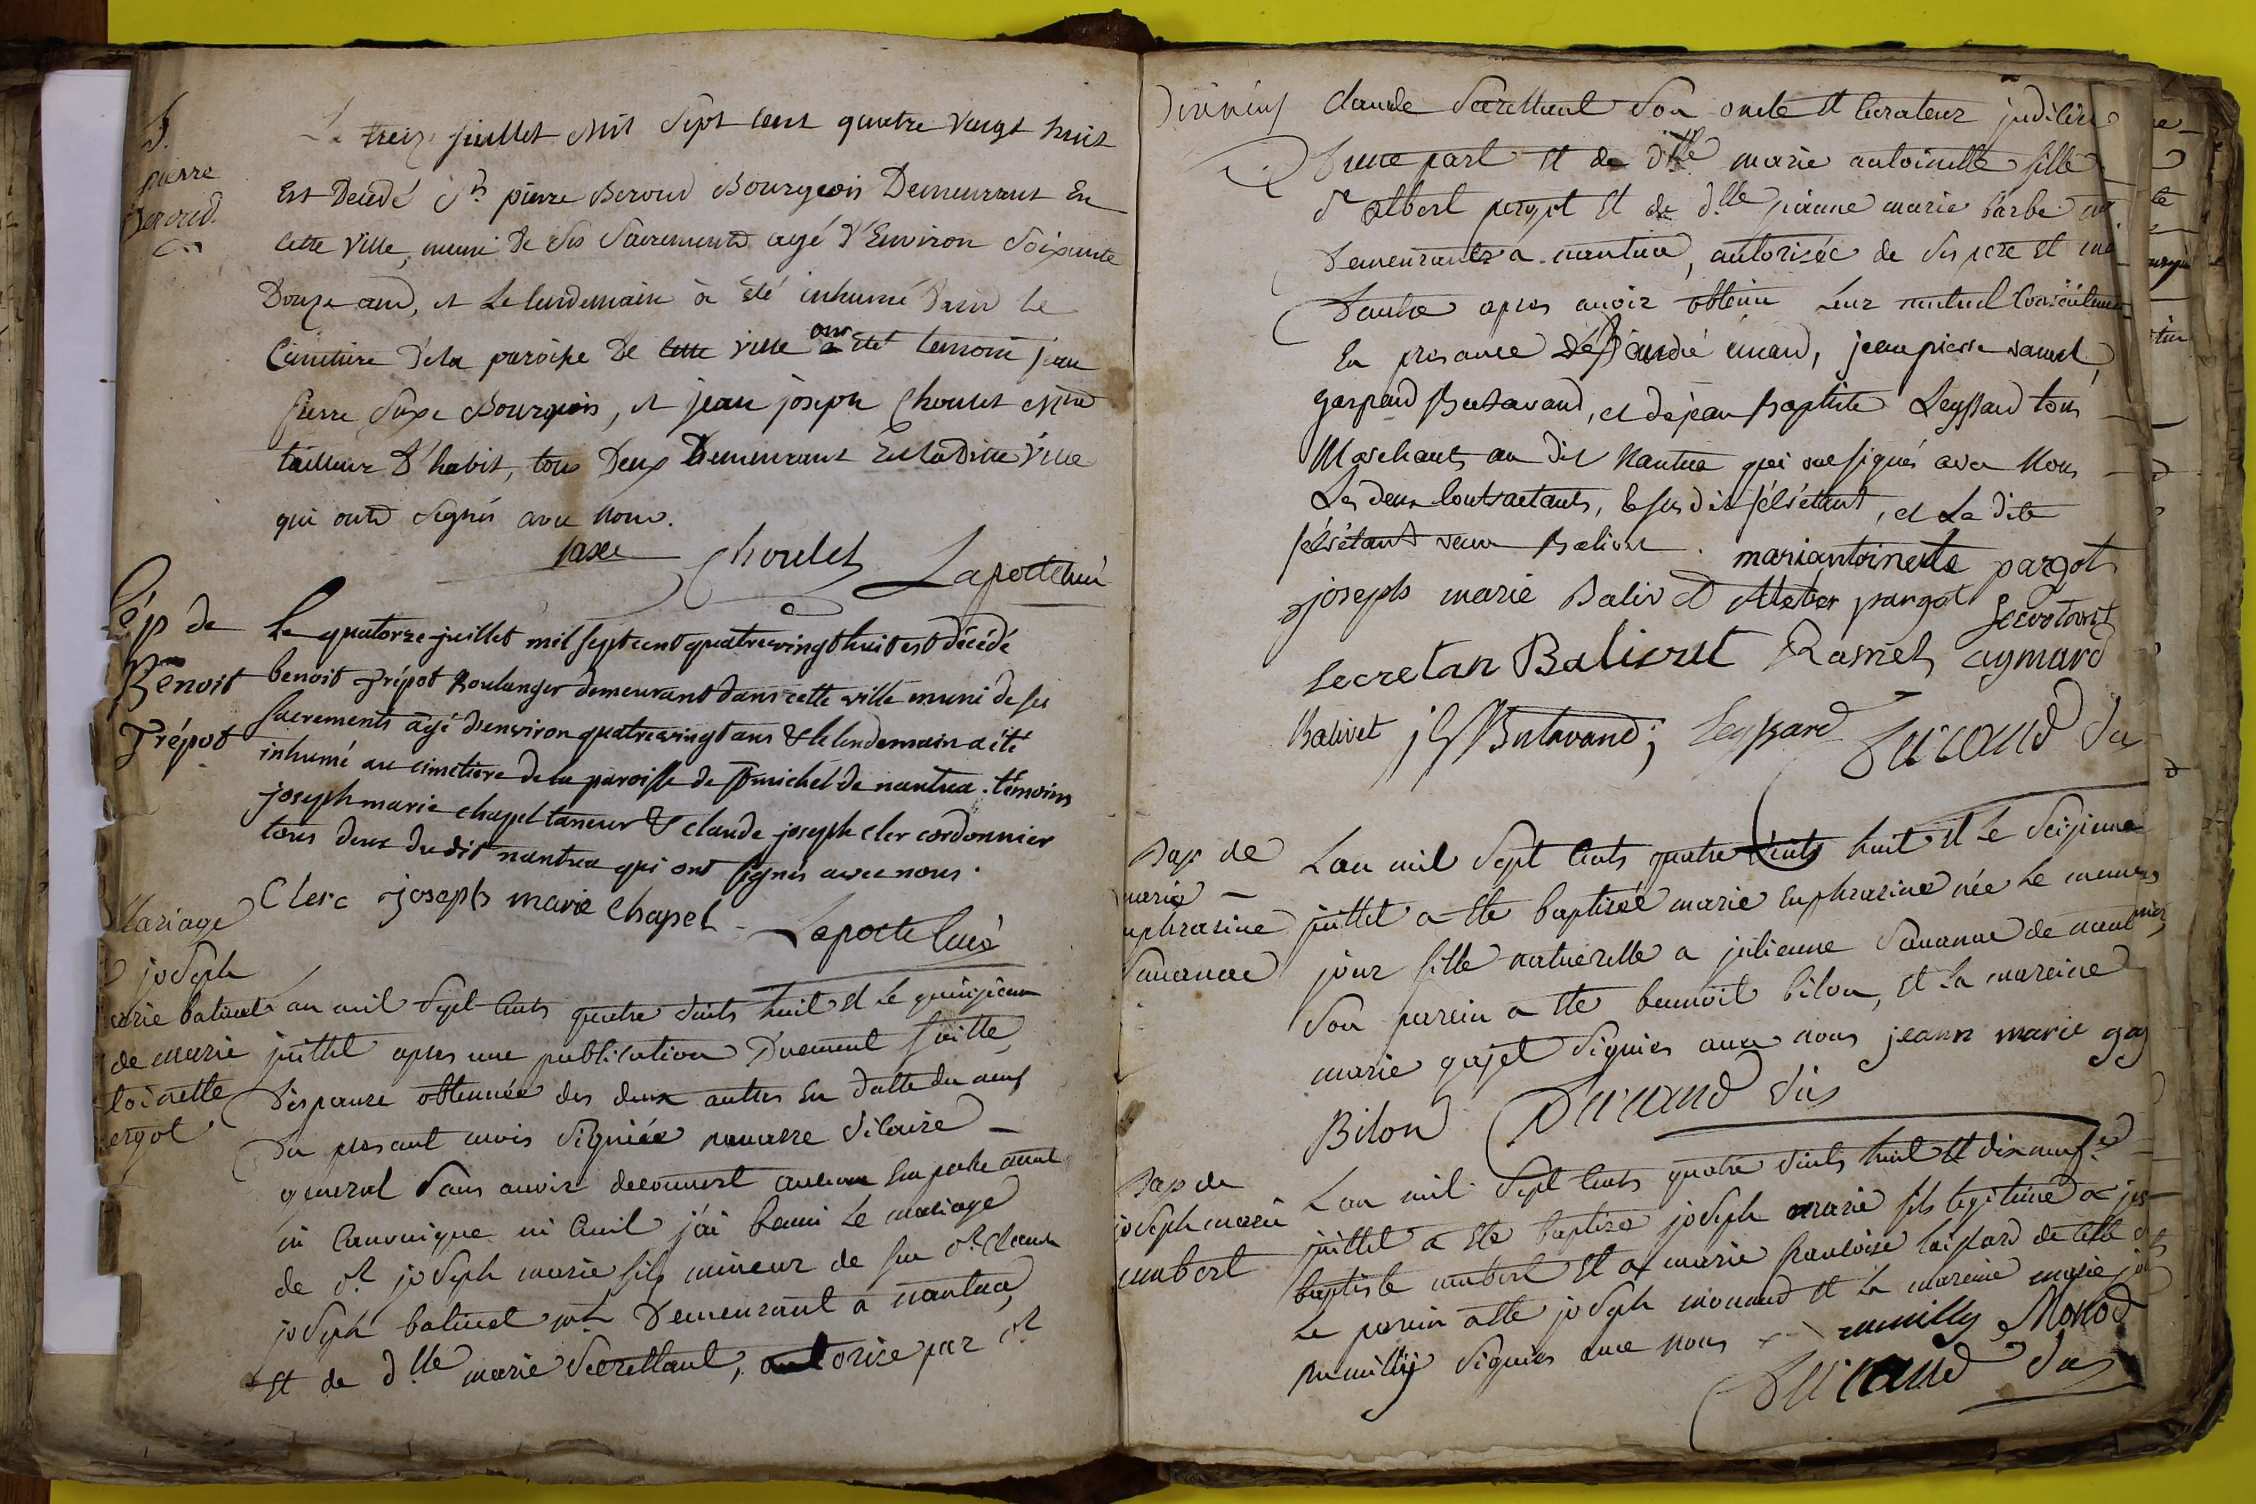 S.
pierre
Beroud.
Le treize juillet Mil Sept cent quatre vingt huit
Est Decedé Sr pierre Beroud Bourgeois Demeurant En
cette ville, muni De Ses Sacrements agé d'Environ Soixante
Douze ans, et Le lendemain à été inhumé dans Le
Cimetiere De la paroisse De cette ville ont été temoins jean
pierre Saxe Bourgeois, et jean joseph Choulet Mtre
tailleur D'habit, tous Deux Demeurant En la Ditte ville
qui ont Signés avec nous.
Saxe Choulet Laporte curé
Sép de
Benoit
Trépot
Le quatorze juillet mil sept cent quatrevingt huit est décédé
benoit Trépot Boulanger demeurant dans cette ville muni de ses
sacrements agé d'environ quatrevingt ans & le lendemain a été
inhumé au cimetiere de la paroisse de St michel de nantua. témoins
joseph marie chapel tanneur & claude joseph cler cordonnier
tous deux du dit nantua qui ont signés avec nous.
Clerc joseph marie Chapel Laporte Curé
Mariage
joseph
marie balivet
de marie
toinette
ergot
Lan mil Sept Cents quatre vints huit et le quinzieme
juillet apres une publication Duement faitte,
Dispence obtenuée des deux autres En datte du neuf
Du presant mois Signiée vicaire
general Sans avoir decouvert aucun Empechement
ni Canonique ni Civil j'ai beni Le mariage
de Sr joseph marie fils mineur de feu Sr Claude
joseph balivet Demeurant a nantua,
et de dlle marie Secrettant, autorise par Sr
Claude Secrettant Son oncle et Curateur judiciere
D'une part et de dlle marie antoinette fille
Sr albert pergot et de dlle jeanne marie barbe
Demeurants a nantua, autorisée de Ses pere et
D'autre apres avoir obtenu Leur mutuel Consentement
En presance de Sr andré emard, jean pierre ramel,
gaspard Butavand, et de jean Baptiste Leyssard tous
Marchants au dit Nantua qui ont signés avec Nous
Les deux Contractants, le susdit secrétant, et La dite
secrétant veuve Balivet. mariantoinette pargot
joseph marie Balivet albert pargot Secretant
Secretan Balivet Ramel aymard
Balivet Butavand; Leyssard Ducand vic
Bap de
marie
uphrasine
Savanne
Lan mil Sept Cents quatre vints huit et Le Seizieme
juillet a ete baptisée marie Euphrasine née Le meme
jour fille naturelle a julienne Savanne de
Son parein a ete bennoit bilon, et La mareine
marie gajet Signies avec nous jeann marie gaj
Bilon Ducand vic
Bap de
joseph marie
umbert
Lan mil Sept Cents quatre vints huit et dix neuf
juillet a ete baptise joseph marie fils legitime a
baptiste umbert et a marie francoise de cette
Le parein a ete joseph monnaud et La mareine marie
rumilly Signies avec nous rumilly Monod
Ducand vic